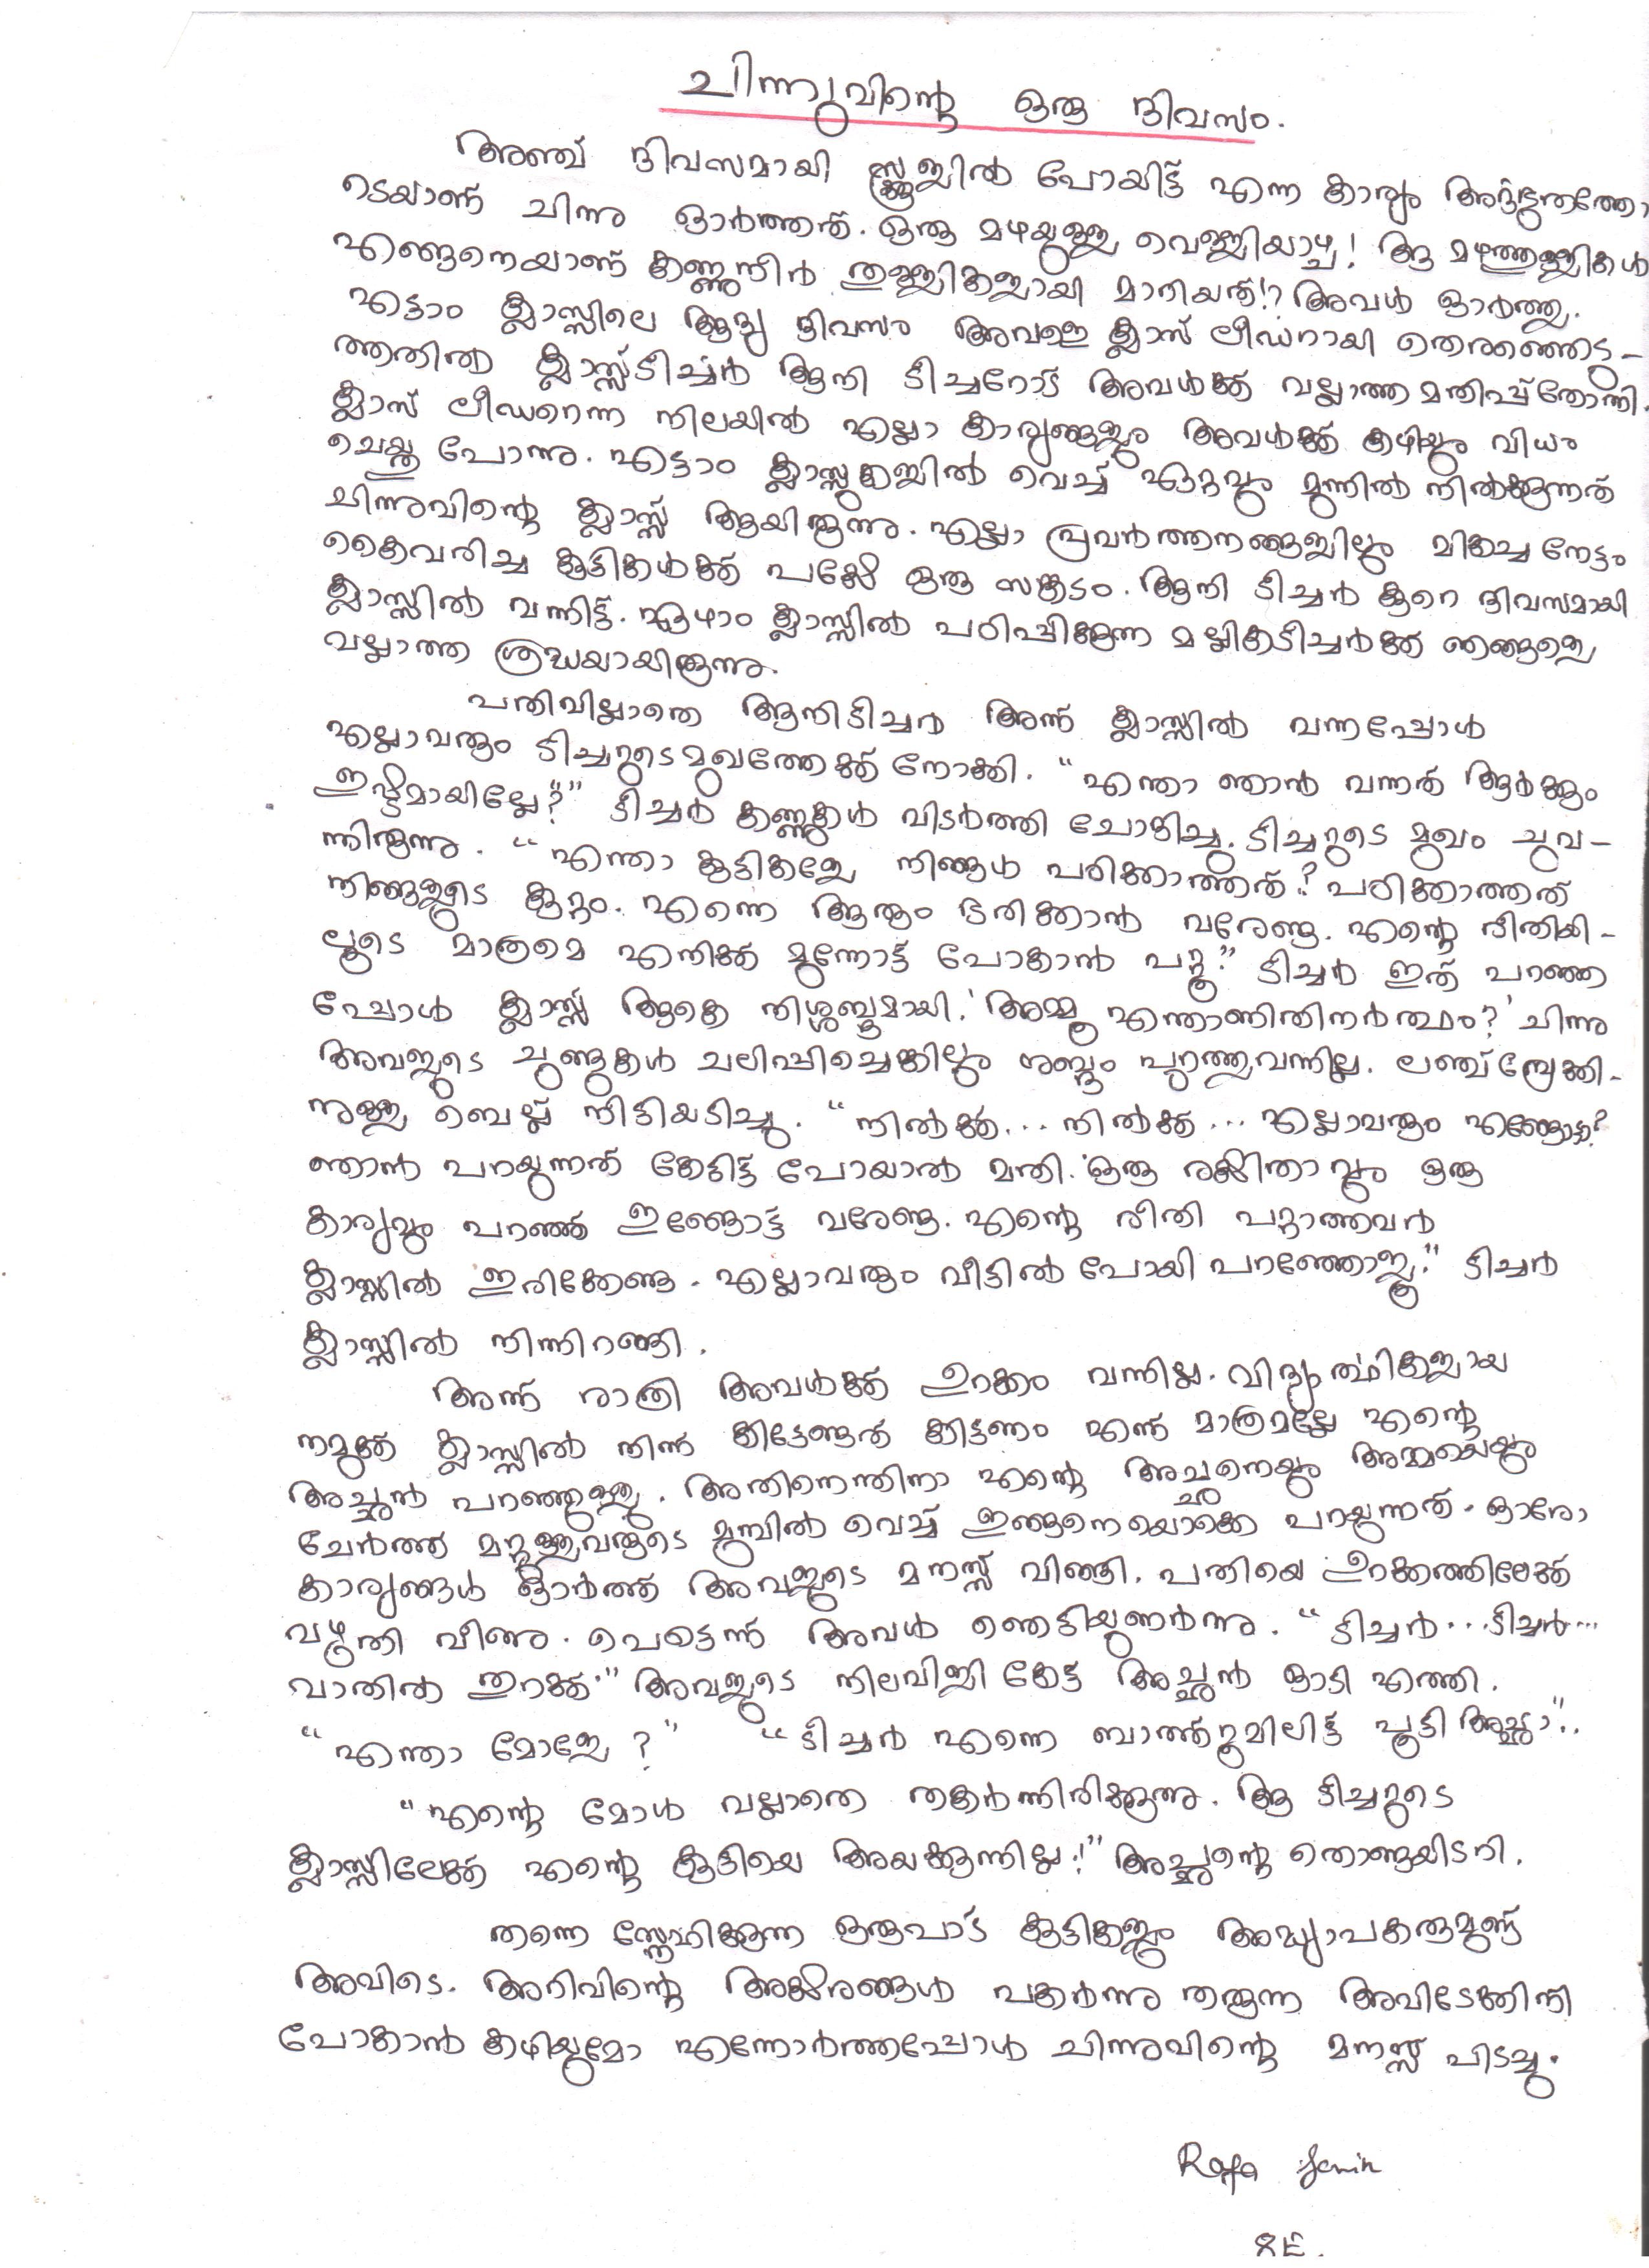 ചിന്നുവിന്റെ ഒരു ദിവസം.
അഞ്ച് ദിവസമായി സ്കൂളിൽ പോയിട്ട് എന്ന കാര്യം അത്ഭുതത്തോ
ടെയാണ് ചിന്നു ഓർത്തത്. ഒരു മഴയുള്ള വെള്ളിയാഴ്ച! ആ മഴത്തുള്ളികൾ
എങ്ങനെയാണ് കണ്ണുനീർ തുള്ളികളായി മാറിയത്!? അവൾ ഓർത്തു.
എട്ടാം ക്ലാസ്സിലെ ആദ്യ ദിവസം അവളെ ക്ലാസ് ലീഡറായി തെരഞ്ഞെടു-
ത്തതിൽ ക്ലാസ്സ്ടീച്ചർ ആനി ടീച്ചറോട് അവൾക്ക് വല്ലാത്ത മതിപ്പ് തോന്നി.
ക്ലാസ് ലീഡറെന്ന നിലയിൽ എല്ലാ കാര്യങ്ങളും അവൾക്ക് കഴിയും വിധം
ചെയ്തു പോന്നു. എട്ടാം ക്ലാസ്സുകളിൽ വെച്ച് ഏറ്റവും മുന്നിൽ നിൽക്കുന്നത്
ചിന്നുവിന്റെ ക്ലാസ്സ് ആയിരുന്നു. എല്ലാ പ്രവർത്തനങ്ങളിലും മികച്ച നേട്ടം
കൈവരിച്ച കുട്ടികൾക്ക് പക്ഷേ ഒരു സങ്കടം. ആനി ടീച്ചർ കുറെ ദിവസമായി
ക്ലാസ്സിൽ വന്നിട്ട്. ഏഴാം ക്ലാസ്സിൽ പഠിപ്പിക്കുന്ന മല്ലികടീച്ചർക്ക് ഞങ്ങളെ
വല്ലാത്ത ശ്രദ്ധയായിരുന്നു.
പതിവില്ലാതെ ആനിടീച്ചർ അന്ന് ക്ലാസ്സിൽ വന്നപ്പോൾ
എല്ലാവരും ടീച്ചറുടെ മുഖത്തേക്ക് നോക്കി. "എന്താ ഞാൻ വന്നത് ആർക്കും
ഇഷ്ടമായില്ലേ?" ടീച്ചർ കണ്ണുകൾ വിടർത്തി ചോദിച്ചു. ടീച്ചറുടെ മുഖം ചുവ-
ന്നിരുന്നു. "എന്താ കുട്ടികളേ നിങ്ങൾ പഠിക്കാത്തത്? പഠിക്കാത്തത്
നിങ്ങളുടെ കുറ്റം. എന്നെ ആരും ഭരിക്കാൻ വരേണ്ട. എന്റെ രീതിയി-
ലൂടെ മാത്രമെ എനിക്ക് മുന്നോട്ട് പോകാൻ പറ്റൂ." ടീച്ചർ ഇത് പറഞ്ഞ
പ്പോൾ ക്ലാസ്സ് ആകെ നിശ്ശബ്ദമായി. 'അമ്മൂ എന്താണിതിനർത്ഥം?' ചിന്നു
അവളുടെ ചുണ്ടുകൾ ചലിപ്പിച്ചെങ്കിലും ശബ്ദം പുറത്തുവന്നില്ല. ലഞ്ച് ബ്രേക്കി-
നുള്ള ബെല്ല് നീട്ടിയടിച്ചു. "നിൽക്ക്... നിൽക്ക്... എല്ലാവരും എങ്ങോട്ടാ?
ഞാൻ പറയുന്നത് കേട്ടിട്ട് പോയാൽ മതി. ഒരു രക്ഷിതാവും ഒരു
കാര്യവും പറഞ്ഞ് ഇങ്ങോട്ട് വരേണ്ട. എന്റെ രീതി പറ്റാത്തവർ
ക്ലാസ്സിൽ ഇരിക്കേണ്ട. എല്ലാവരും വീട്ടിൽ പോയി പറഞ്ഞോളൂ." ടീച്ചർ
ക്ലാസ്സിൽ നിന്നിറങ്ങി.
അന്ന് രാത്രി അവൾക്ക് ഉറക്കം വന്നില്ല. വിദ്യാർത്ഥികളായ
നമുക്ക് ക്ലാസ്സിൽ നിന്ന് കിട്ടേണ്ടത് കിട്ടണം എന്ന് മാത്രമല്ലേ എന്റെ
അച്ഛൻ പറഞ്ഞുള്ളൂ. അതിനെന്തിനാ എന്റെ അച്ഛനെയും അമ്മയെയും
ചേർത്ത് മറ്റുള്ളവരുടെ മുമ്പിൽ വെച്ച് ഇങ്ങനെയൊക്കെ പറയുന്നത്. ഓരോ
കാര്യങ്ങൾ ഓർത്ത് അവളുടെ മനസ്സ് വിങ്ങി. പതിയെ ഉറക്കത്തിലേക്ക്
വഴുതി വീണു. പെട്ടെന്ന് അവൾ ഞെട്ടിയുണർന്നു. "ടീച്ചർ... ടീച്ചർ...
വാതിൽ തുറക്ക്." അവളുടെ നിലവിളി കേട്ട് അച്ഛൻ ഓടി എത്തി.
"എന്താ മോളേ?" "ടീച്ചർ എന്നെ ബാത്ത്റൂമിലിട്ട് പൂട്ടി അച്ഛാ"..
"എന്റെ മോൾ വല്ലാതെ തകർന്നിരിക്കുന്നു. ആ ടീച്ചറുടെ
ക്ലാസ്സിലേക്ക് എന്റെ കുട്ടിയെ അയക്കുന്നില്ല!" അച്ഛന്റെ തൊണ്ടയിടറി.
തന്നെ സ്നേഹിക്കുന്ന ഒരുപാട് കുട്ടികളും അദ്ധ്യാപകരുമുണ്ട്
അവിടെ. അറിവിന്റെ അക്ഷരങ്ങൾ പകർന്നു തരുന്ന അവിടേക്കിനി
പോകാൻ കഴിയുമോ എന്നോർത്തപ്പോൾ ചിന്നുവിന്റെ മനസ്സ് പിടച്ചു.
Rafa
8E.